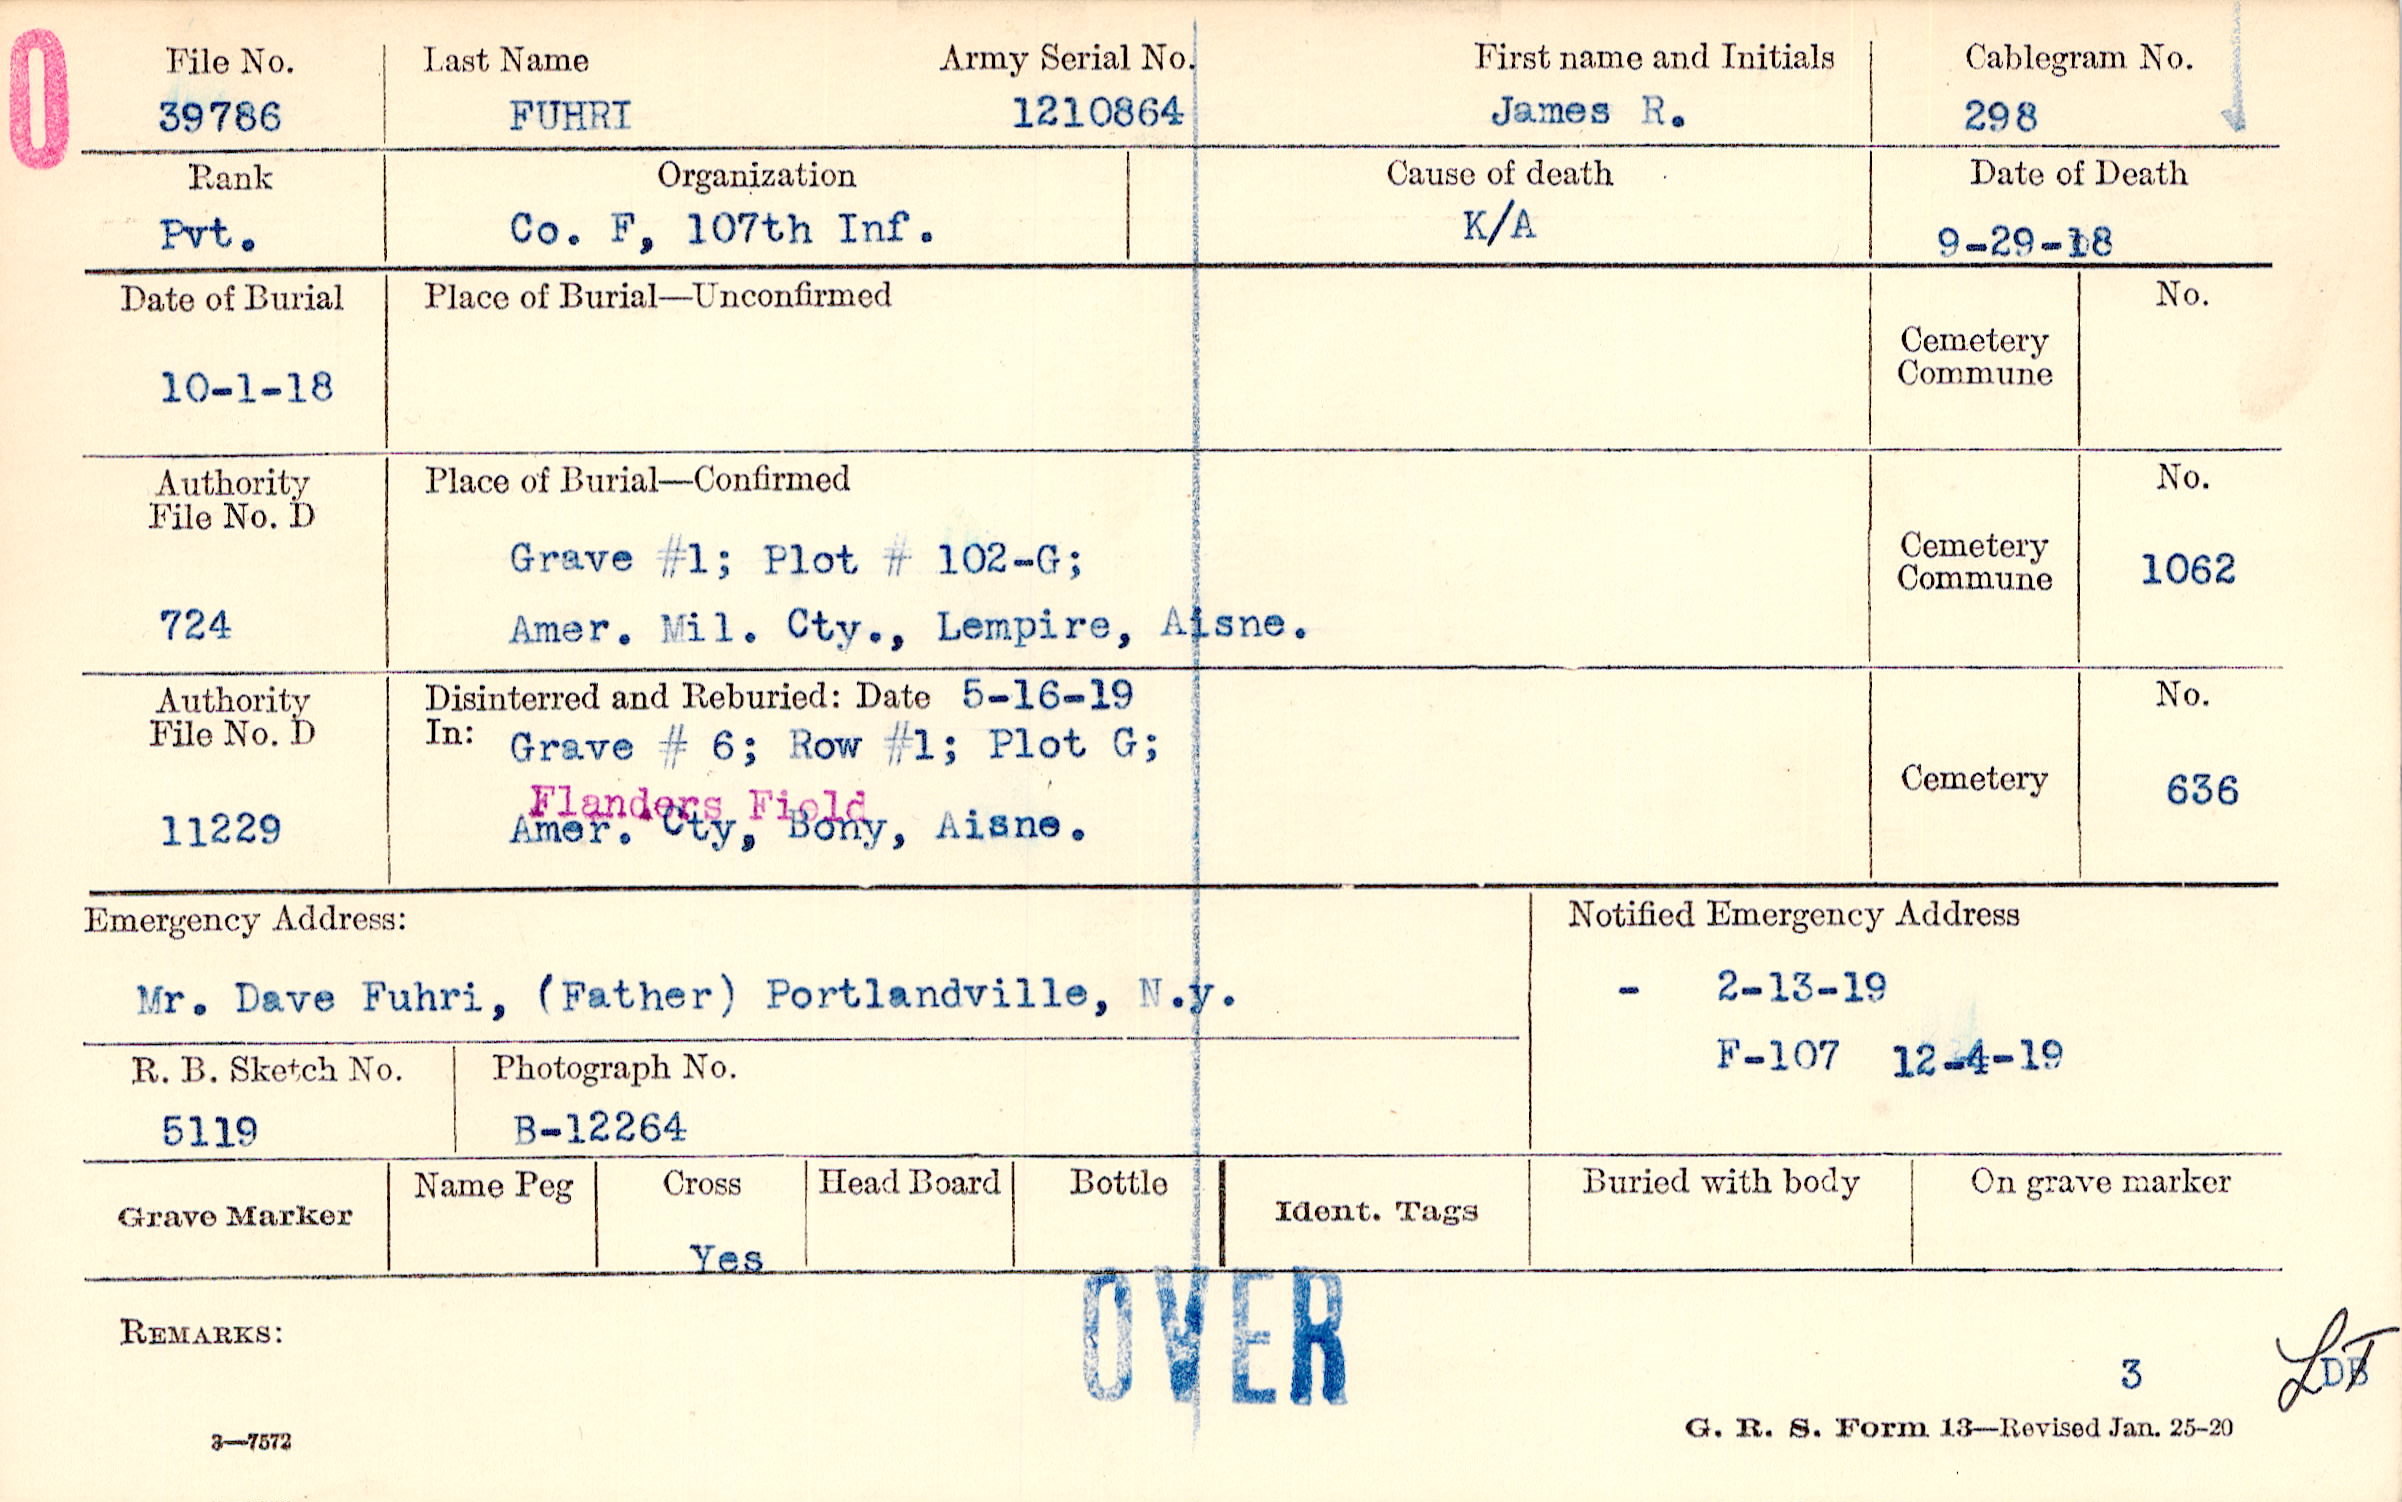 0
File No. Last Name Army Serial No. First name and Initials Cablegram No.
39786 FUHRI 1210864 James R. 298
Rank Organization Cause of death Date of Death
Pvt. Co. F, 107th Inf. K/A 9-29-18
Date of Burial Place of Burial—Unconfirmed No.
Cemetery
Commune
10-1-18
Authority Place of Burial—Confirmed No.
File No. D
Grave #1; Plot # 102-G; Cemetery
Commune 1062
724 Amer. Mil. Cty., Lempire, Aisne.
Authority Disinterred and Reburied: Date 5-16-19 No.
File No. D In: Grave # 6; Row #1; Plot G;
Cemetery 636
Flanders Field
11229 Amer. Cty, Bony, Aisne.
Emergency Address: Notified Emergency Address
Mr. Dave Fuhri, (Father) Portlandville, N.y. - 2-13-19
F-107 12-4-19
R. B. Sketch No. Photograph No.
5119 B-12264
Grave Marker Name Peg Cross Head Board Bottle Ident. Tags Buried with body On grave marker
Yes
OVER
REMARKS:
3
3—7572 G. R. S. Form 13—Revised Jan. 25-20